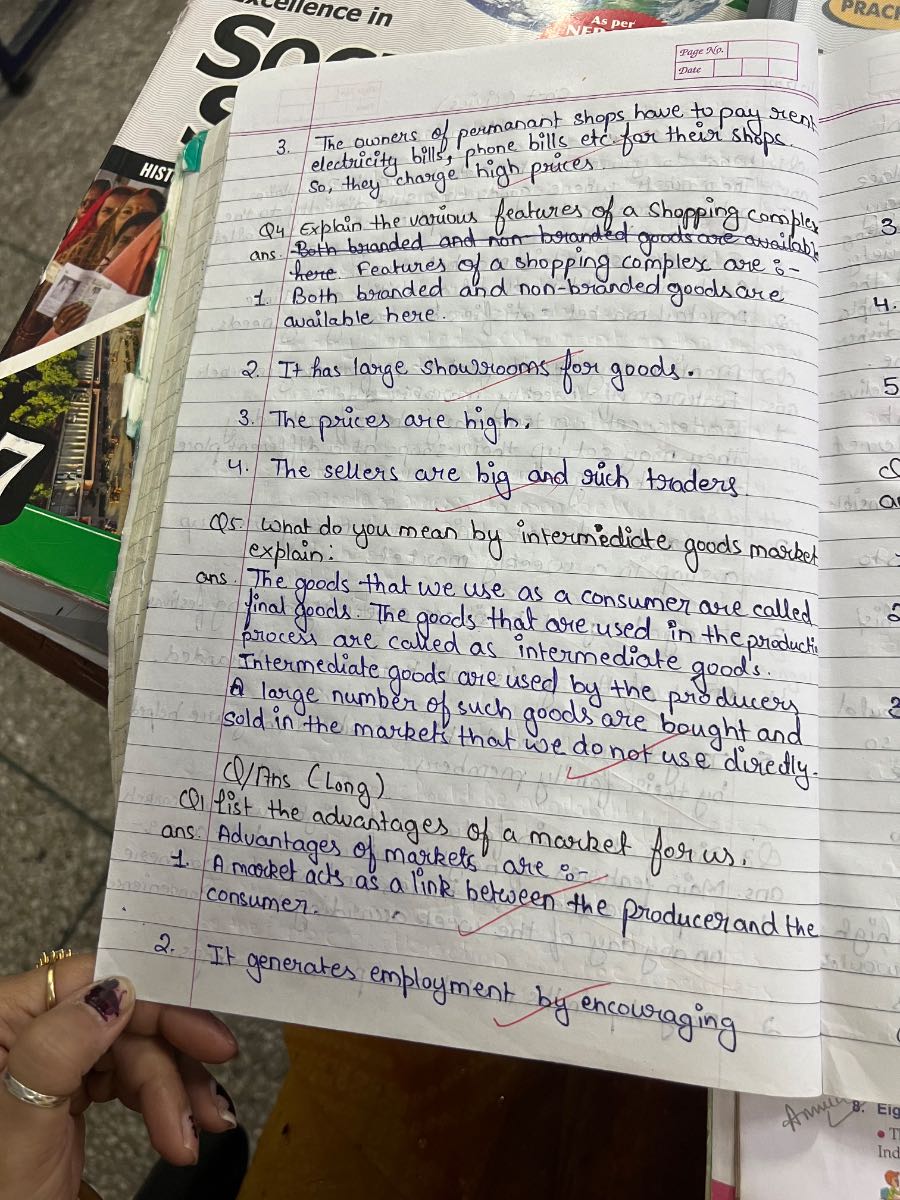 Excellence in
Soc
As per
NEP
PRACT
HIST
7
Page No.
Date
3. The owners of permanant shops have to pay rent
electricity bills, phone bills etc. for their shops.
So, they charge high prices
Q4 Explain the various features of a shopping complex
ans. Both branded and non-branded goods are available
here. Features of a shopping complex are :-
1. Both branded and non-branded goods are
available here.
2. It has large showrooms for goods.
3. The prices are high.
4. The sellers are big and rich traders
Q5. What do you mean by intermediate goods market
explain:
ans. The goods that we use as a consumer are called
final goods. The goods that are used in the producti
process are called as intermediate goods.
Intermediate goods are used by the producers
A large number of such goods are bought and
sold in the markets that we do not use directly.
Q/Ans (Long)
Q1 List the advantages of a market for us.
ans. Advantages of markets are :-
1. A market acts as a link between the producer and the
consumer.
2. It generates employment by encouraging
3
4.
5
2
8. Eig
Ind